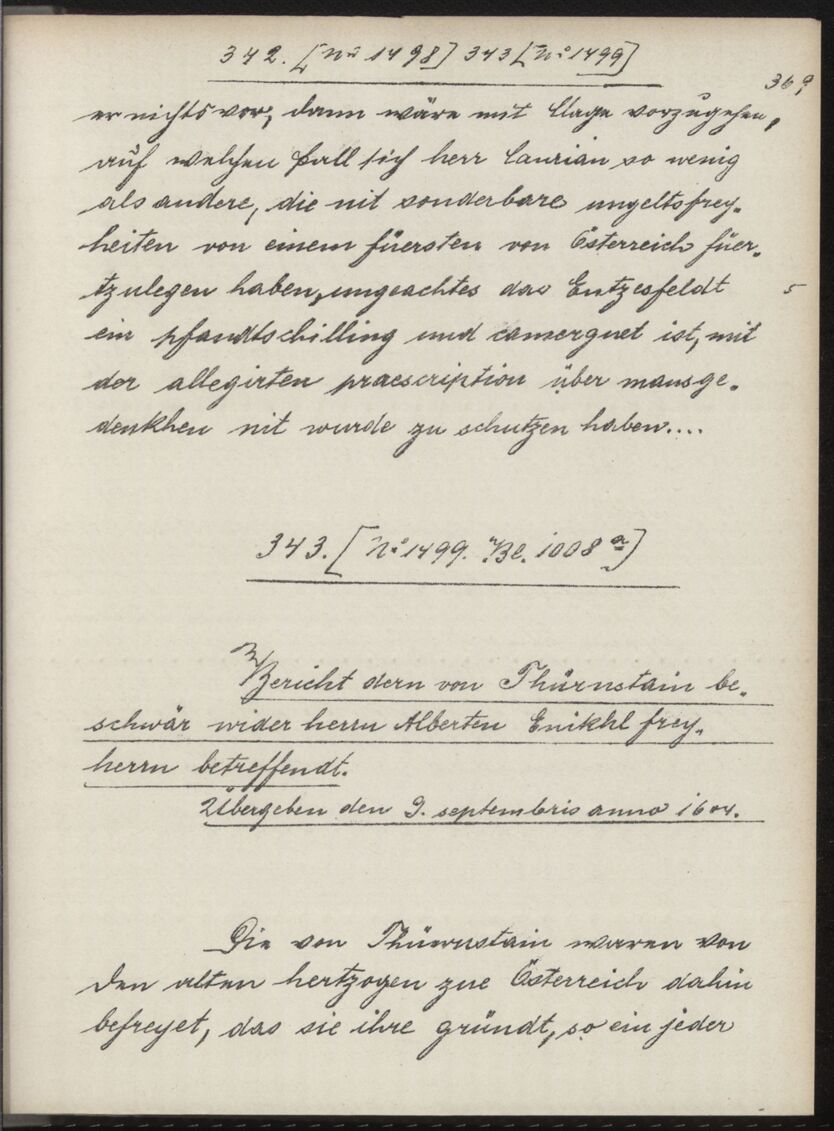 342. [No 1498] 343 [No 1499]
369
er nichts vor, dann wäre mit klage vorzugehen,
auf welchen fall sich herr Laurian so wenig
als andere, die nit sonderbare ungeltsfrey-
heiten von einem füersten von Österreich füer-
tzulegen haben, ungeachtes das Entzesfeldt
5
ein pfandtschilling und camerguet ist, mit
der allegirten praescription über mansge-
denkhen nit wurde zu schutzen haben....
343. [No 1499. Bl. 1008 a]
Bericht dern von Thürnstain be-
schwär wider herrn Alberten Enikhl frey-
herrn betreffendt.
Übergeben den 9. septembris anno 1604.
Die von Thüernstain waren von
den alten hertzogen zue Österreich dahin
befreyet, das sie ihre gründt, so ein jeder